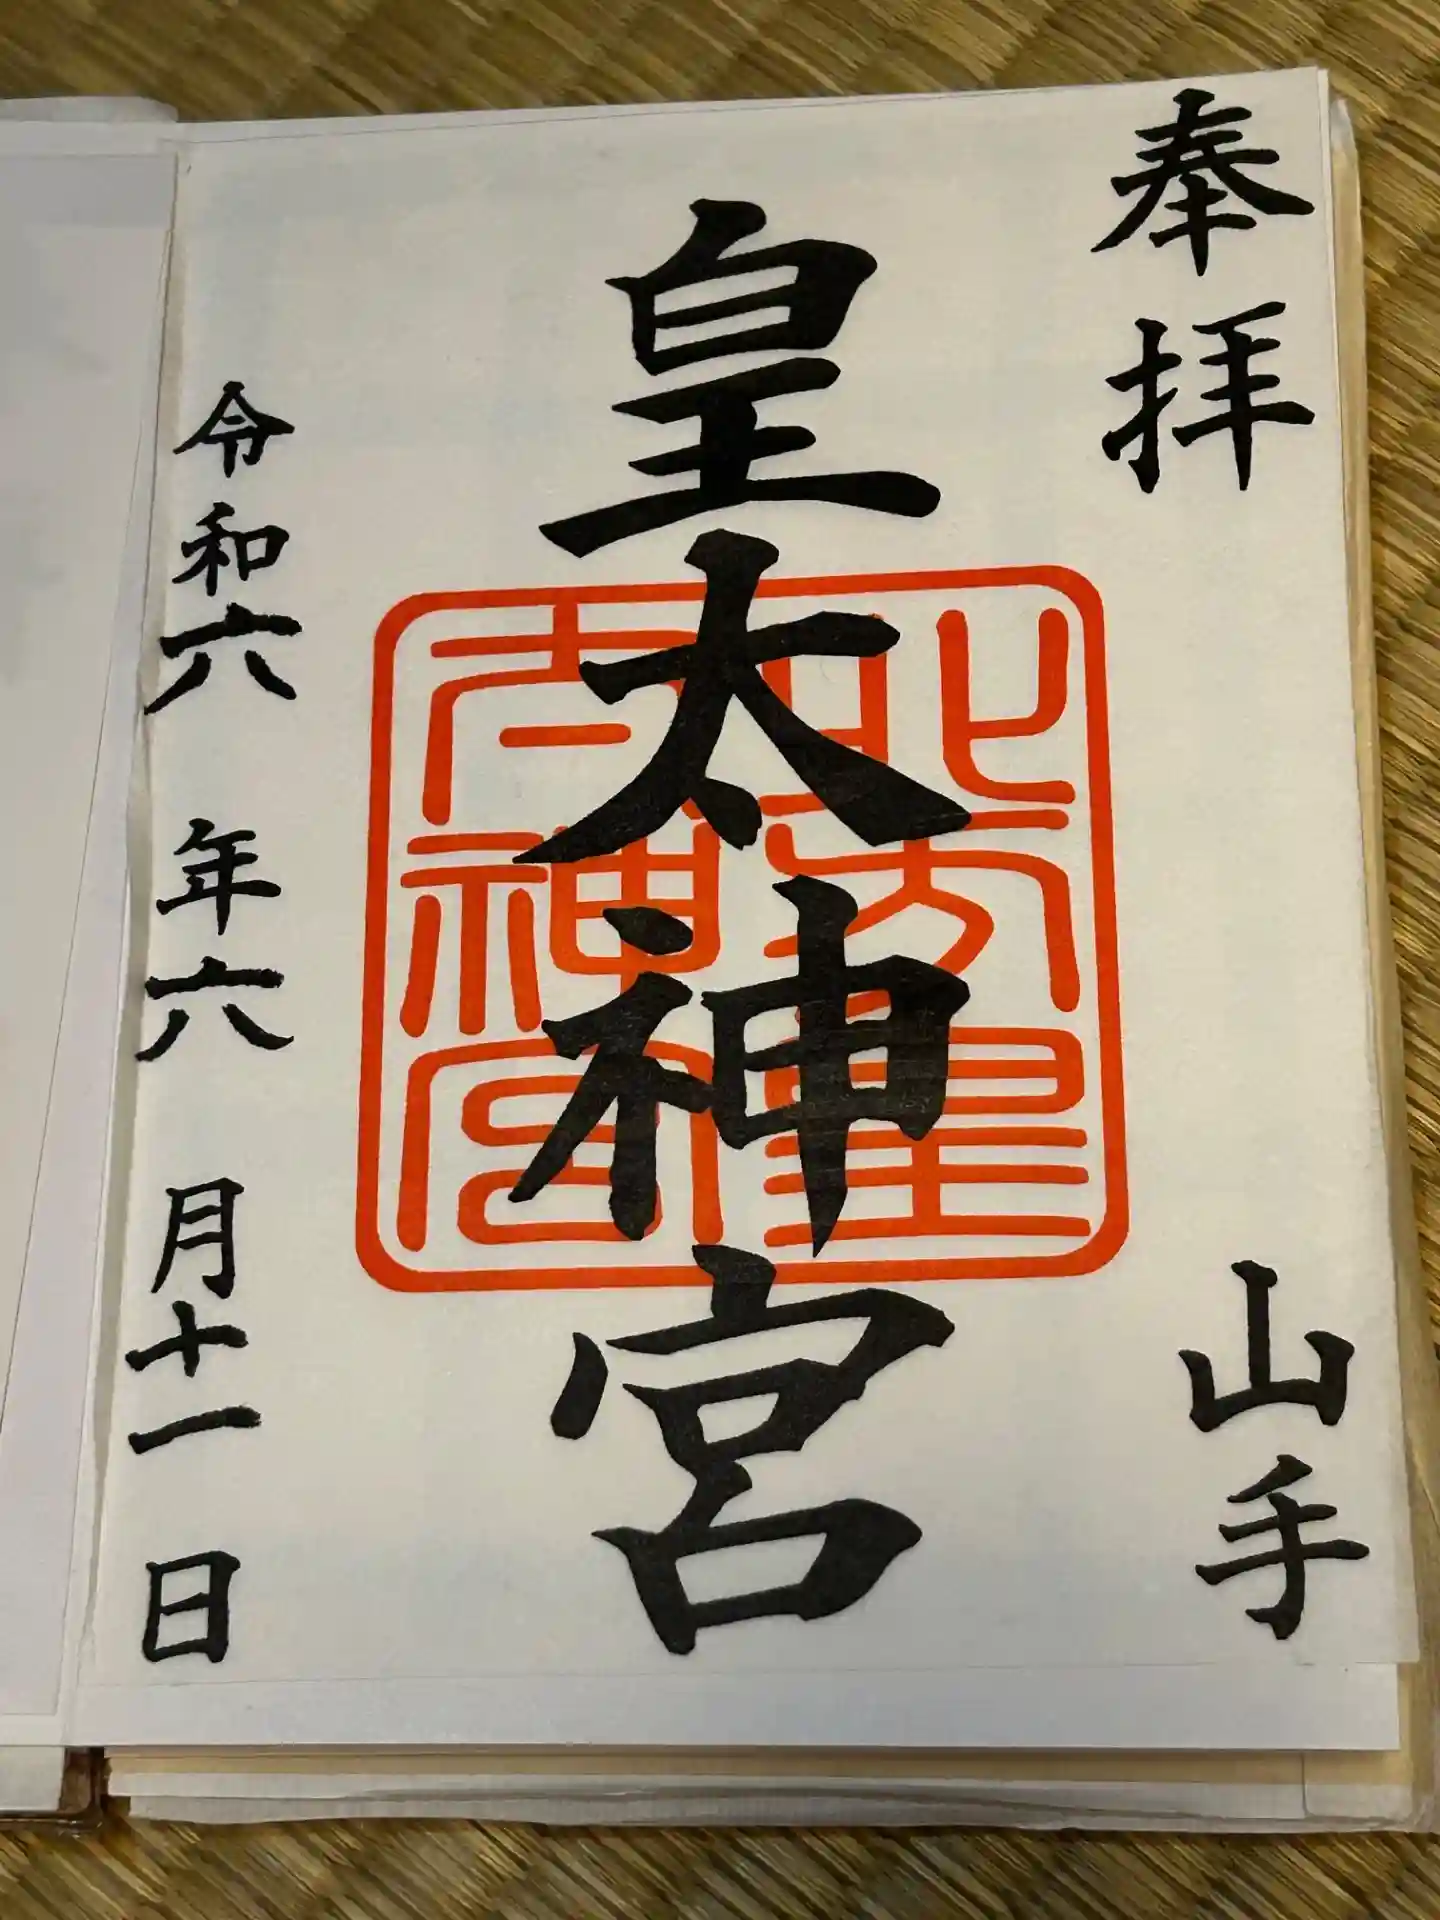 奉拝
山手
皇太神宮
北方皇
太神宮
令和六年六月十一日